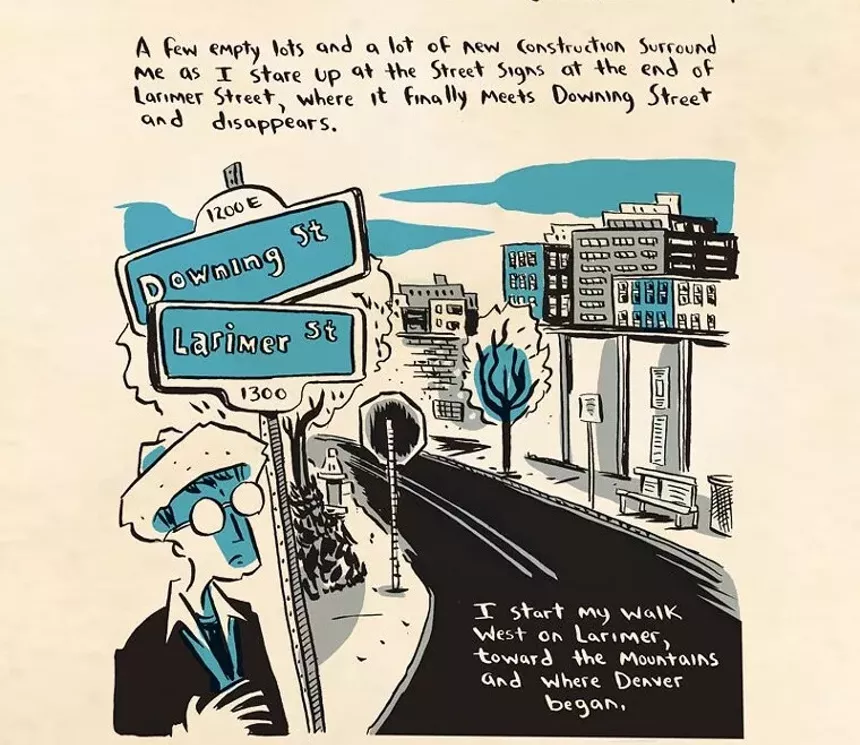 A few empty lots and a lot of new construction surround
me as I stare up at the street signs at the end of
Larimer Street, where it finally meets Downing Street
and disappears.
1200 E
Downing St
Larimer St
1300
I start my walk
west on Larimer,
toward the mountains
and where Denver
began.